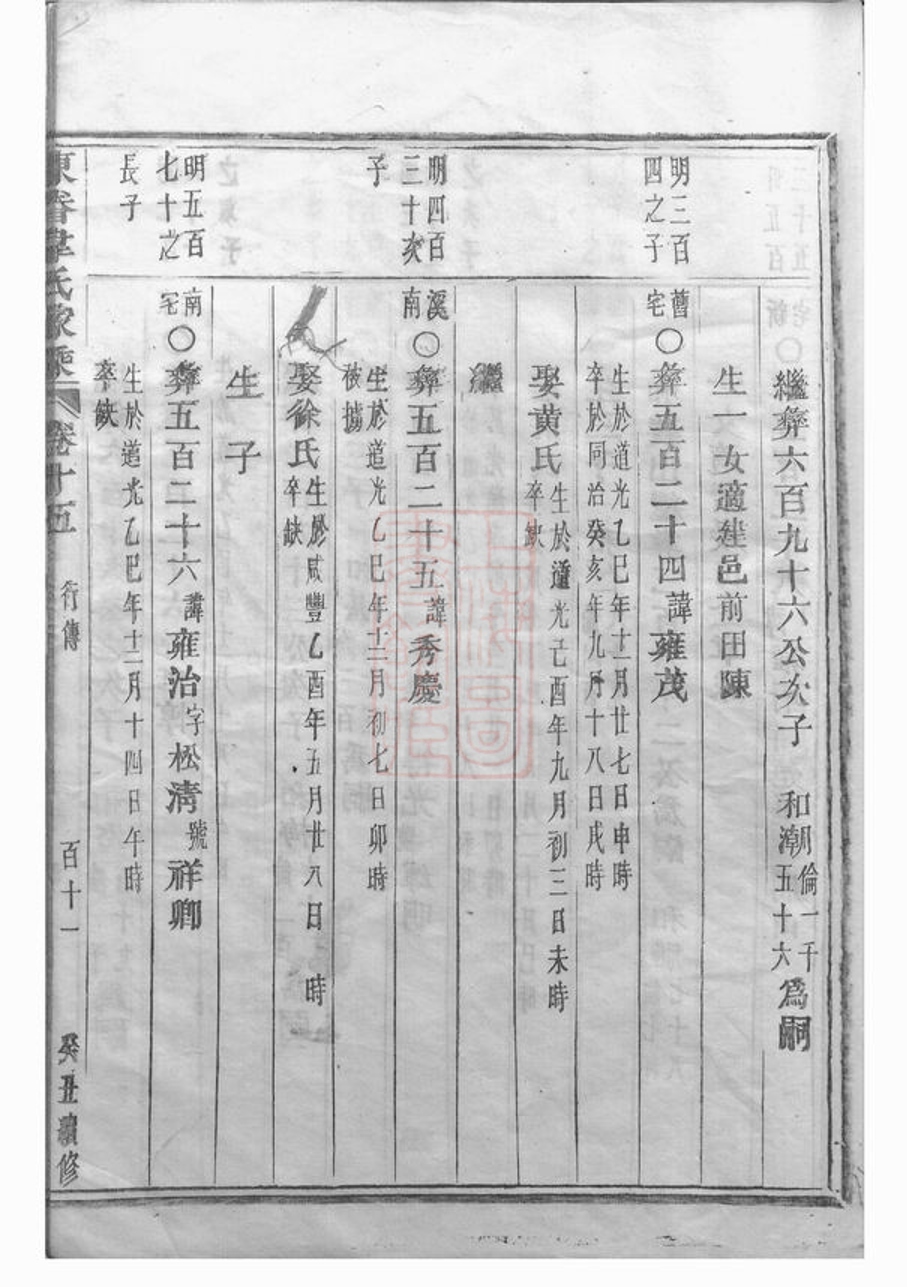 繼彝六百九十六公次子 和潮倫一千五十六為嗣
生一女適建邑前田陳
明三百四之子
舊宅○彝五百二十四諱雍茂
生於道光乙巳年十二月廿七日申時
卒於同治癸亥年九月十八日戌時
娶黄氏生於道光己酉年九月初三日未時
卒缺
繼
明四百三十次子
溪南○彝五百二十五諱秀慶
生於道光乙巳年十二月初七日卯時
被擄
娶徐氏生於咸豐乙酉年五月廿八日 時
卒缺
生 子
明五百七十之長子
南宅○彝五百二十六諱雍治字松清號祥卿
生於道光乙巳年十二月十四日午時
卒缺
東眷韋氏家乘 卷十五 行傳 百十一 癸丑續修